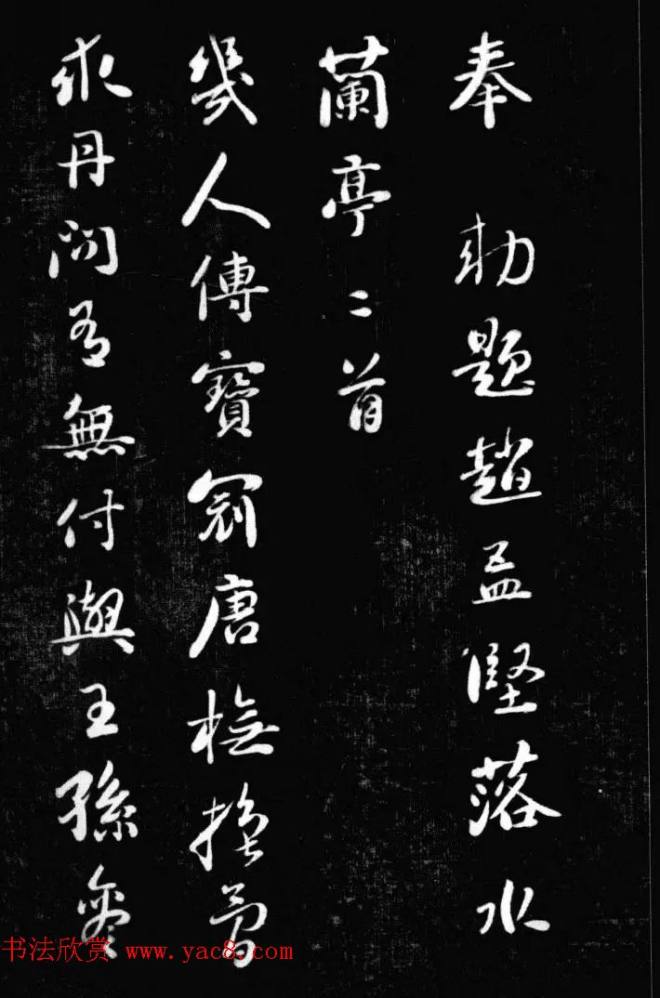 奉 勅題趙孟堅落水
蘭亭二首
幾人傳寶冠唐模
求丹問有無付與王孫
书法欣赏 www.yac8.com